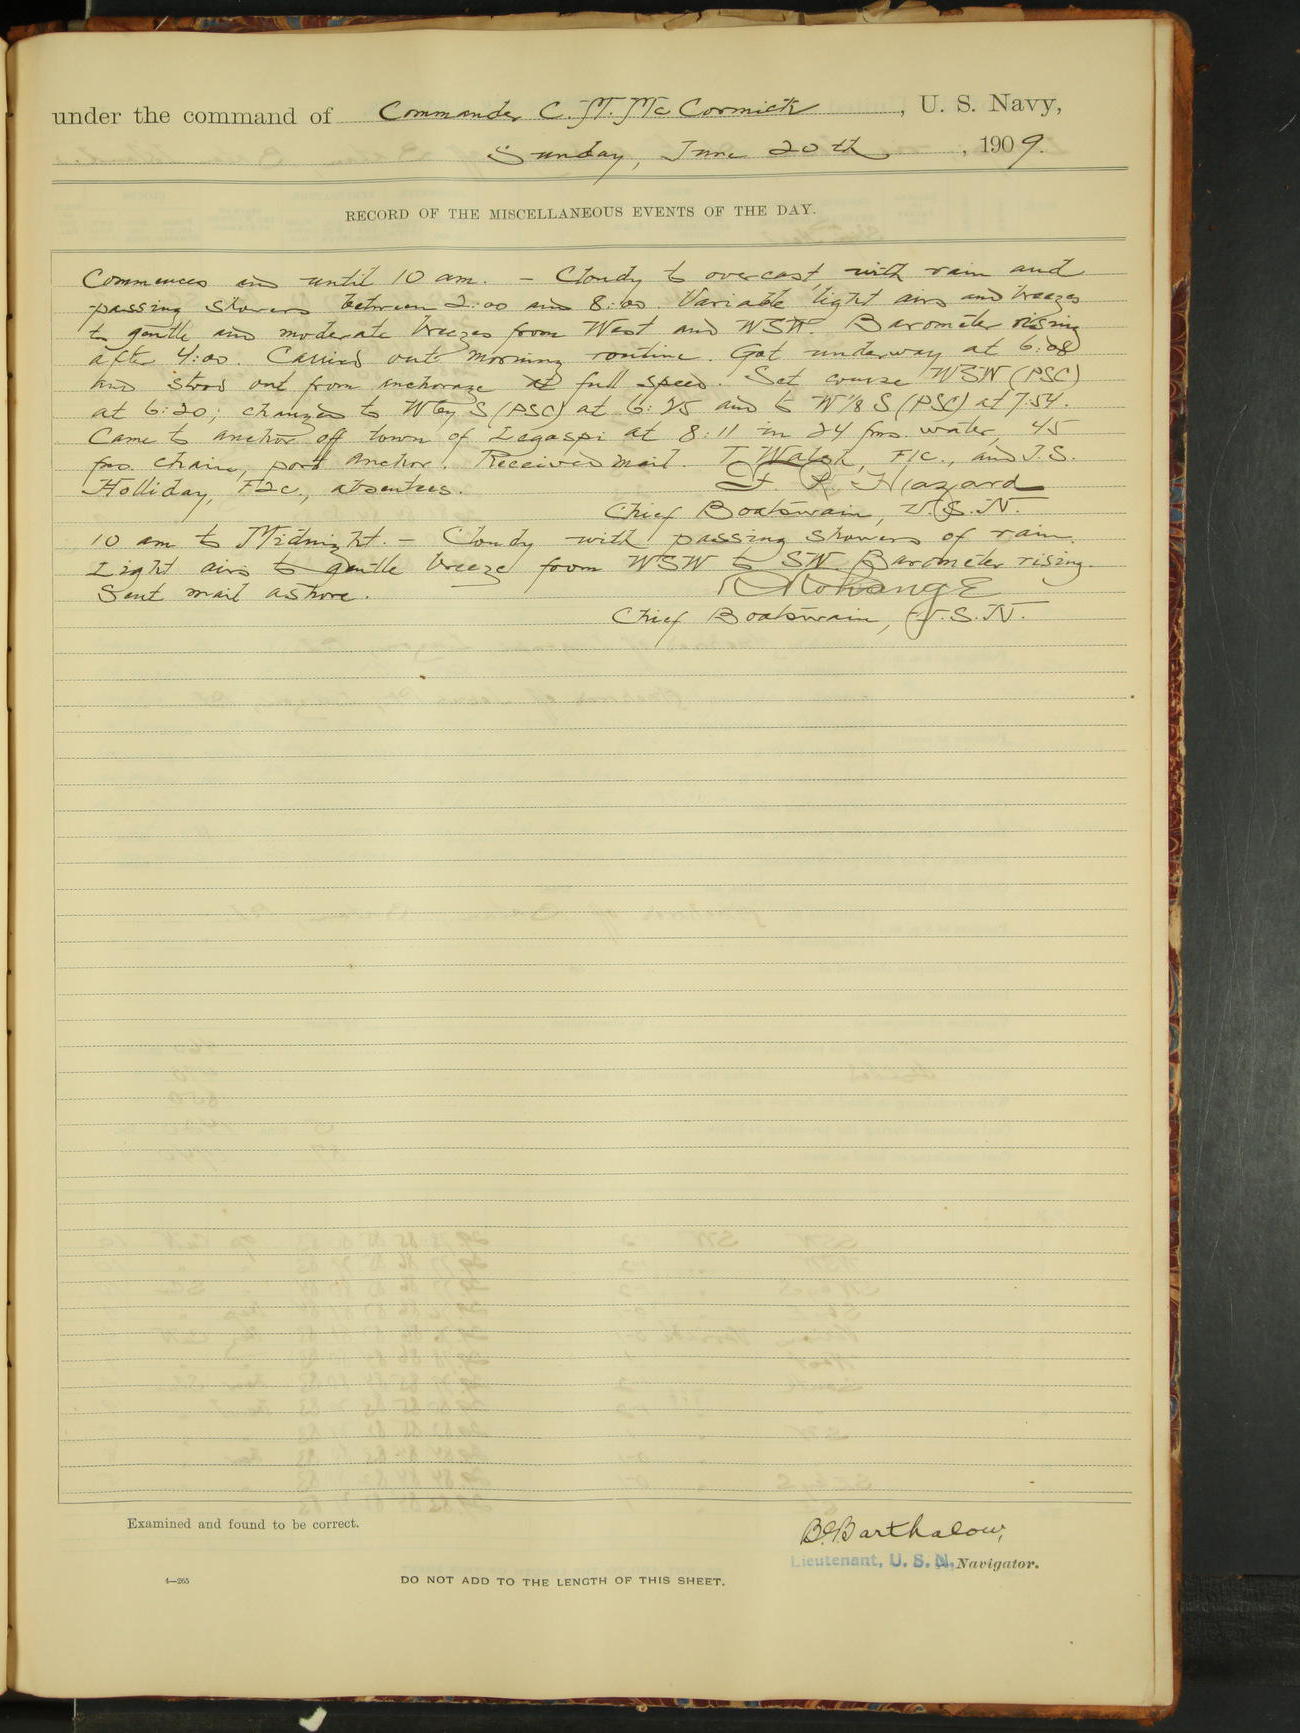 under the command of Commander C. M. McCormick, U. S. Navy,
Sunday, June 20th, 1909.
RECORD OF THE MISCELLANEOUS EVENTS OF THE DAY.
Commences and until 10 am. - Cloudy to overcast, with rain and
passing showers between 2:00 and 8:00. Variable light airs and breezes
to gentle and moderate breezes from West and WSW. Barometer rising
after 4:00. Carried out morning routine. Got underway at 6:08
and stood out from anchorage at full speed. Set course WSW (PSC)
at 6:20; changed to W by S (PSC) at 6:25 and to W 1/8 S (PSC) at 7:54.
Came to anchor off town of Legaspi at 8:11 in 24 fms. water, 45
fms. chain, port anchor. Received mail. T. Walsh, F1c., and J.S.
Holliday, F2c., absentees.
Hazard
Chief Boatswain, U.S.N.
10 am to Midnight. - Cloudy with passing showers of rain.
Light airs to gentle breeze from WSW to SW. Barometer rising.
Sent mail ashore.
Chief Boatswain, U.S.N.
Examined and found to be correct.
Barthalow,
Lieutenant, U. S. N. Navigator.
4—265
DO NOT ADD TO THE LENGTH OF THIS SHEET.